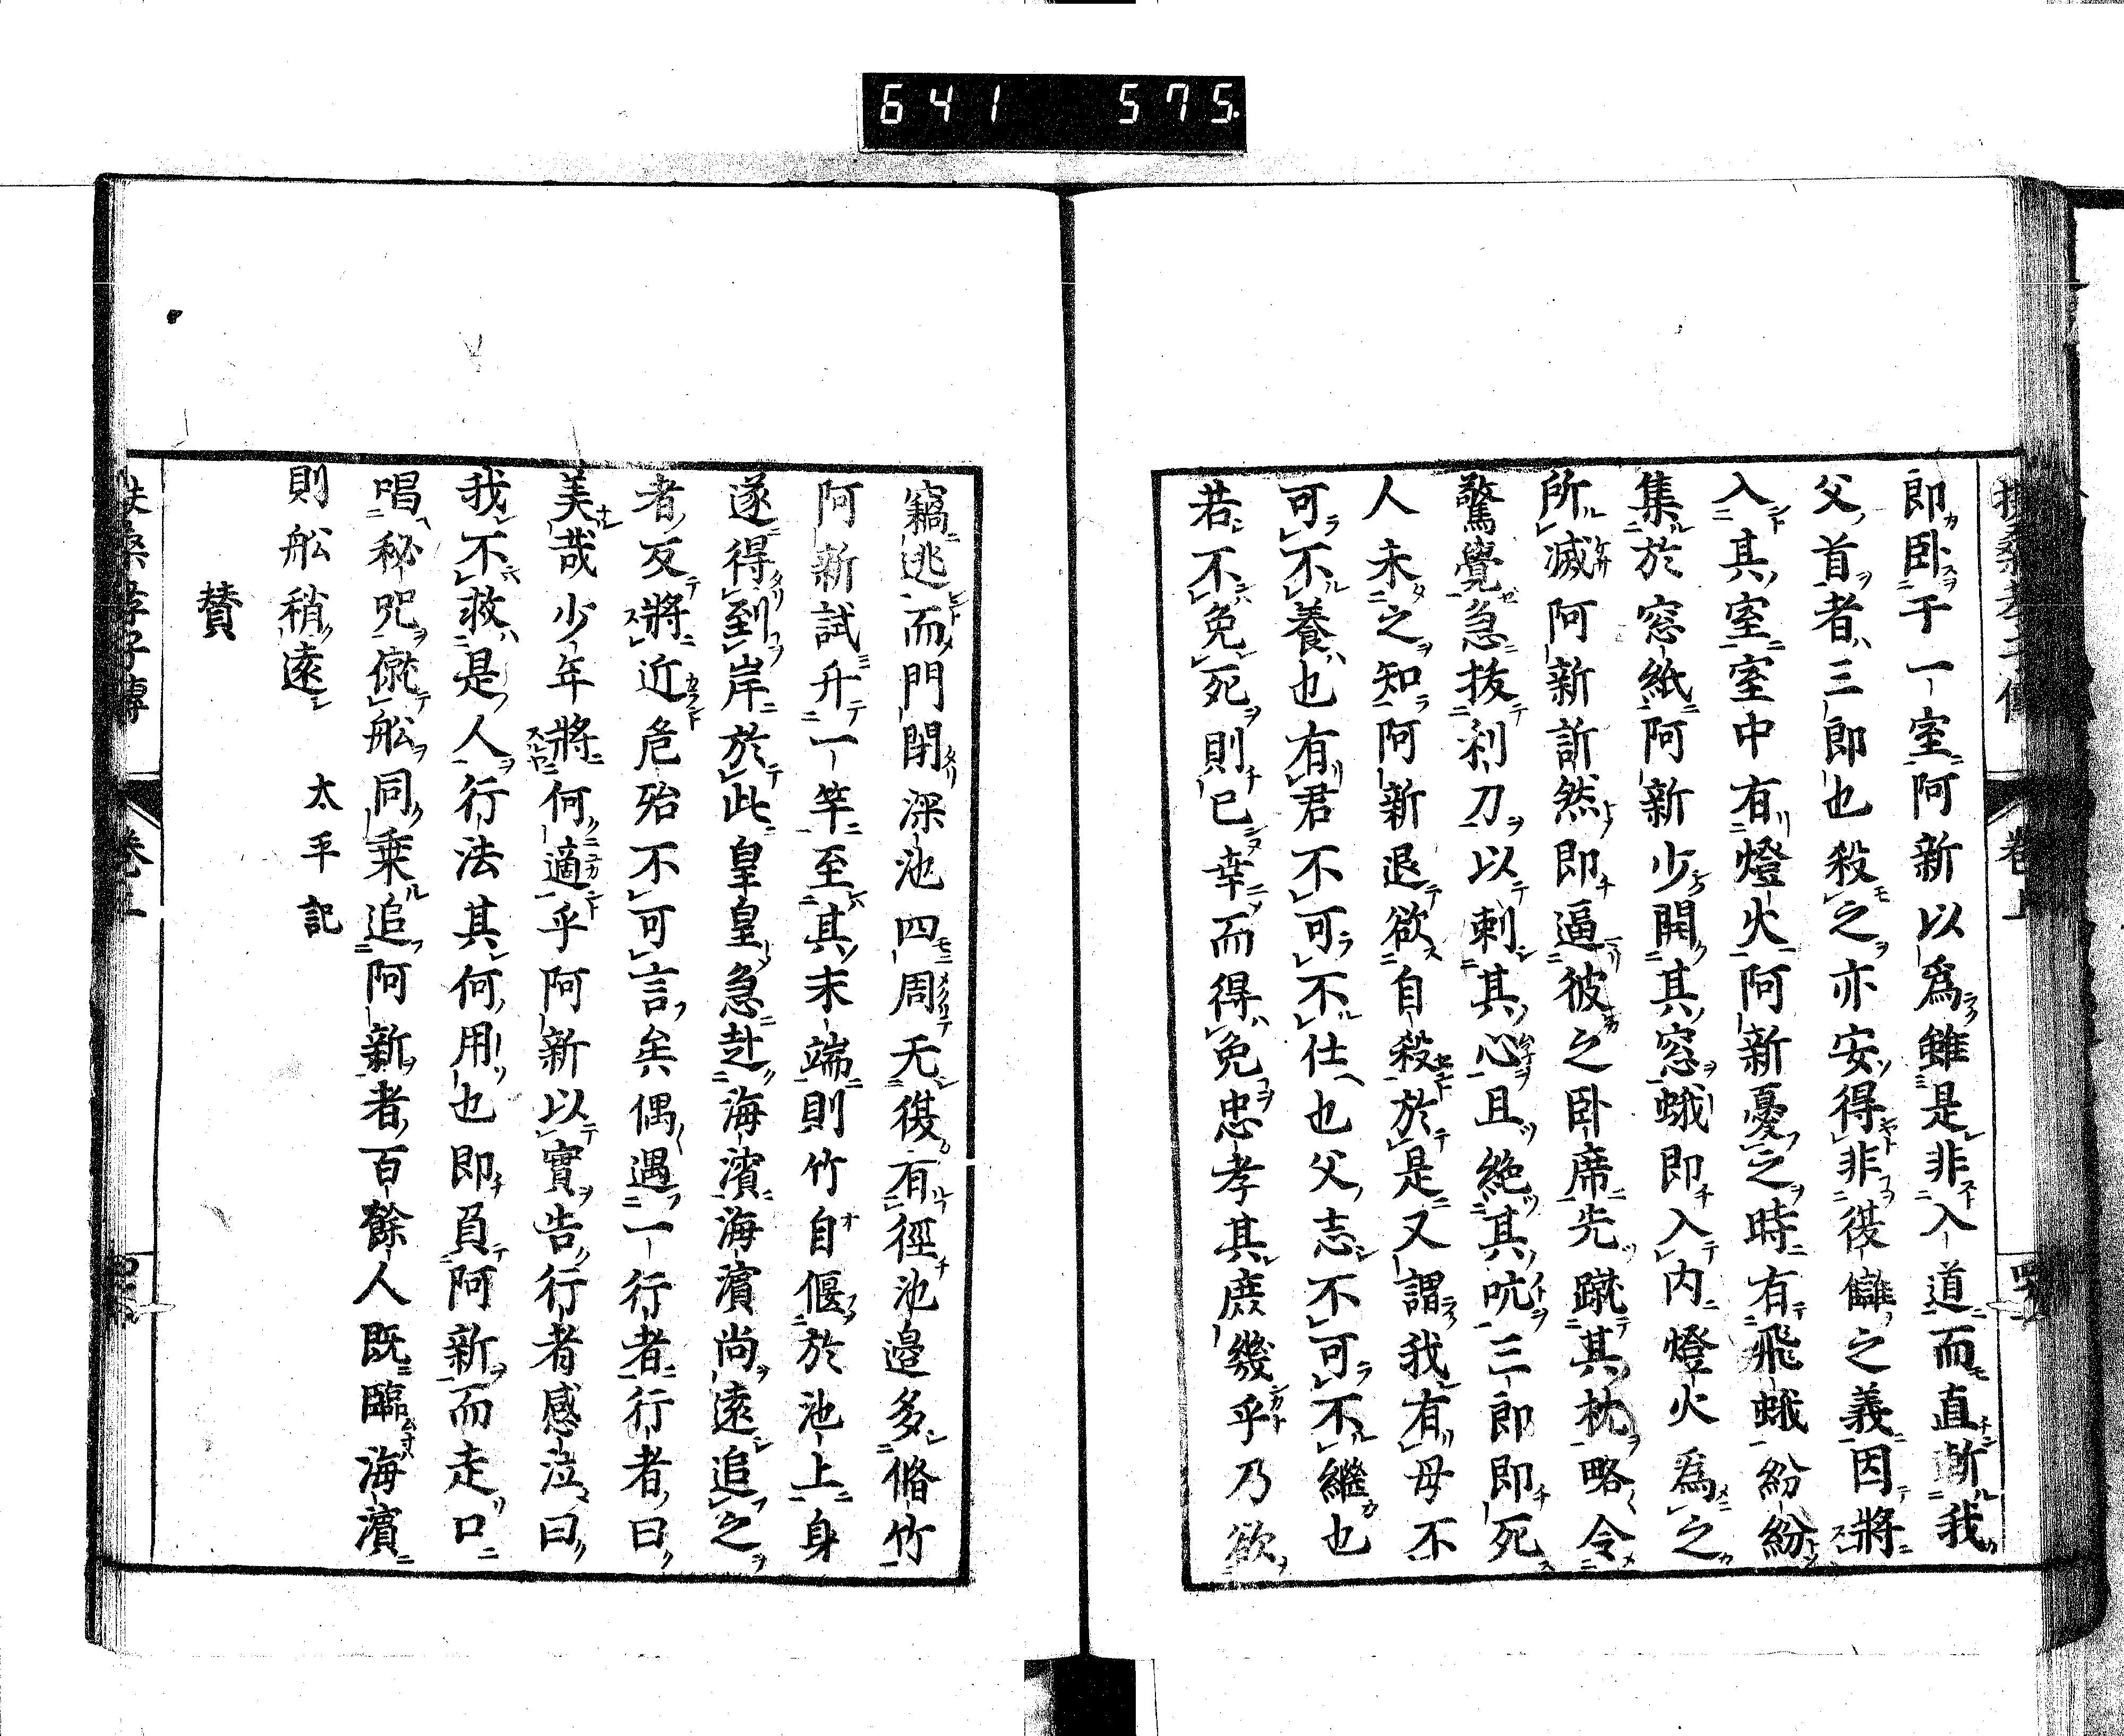 641 575.
郎臥于一室阿新以爲雖是非入道而直斬我
父首者三郎也殺之亦安得非復讎之義因將
入其室室中有燈火阿新憂之時有飛蛾紛紛
集於窓紙阿新少開其窓蛾即入内燈火爲之
所滅阿新訢然即逼彼之臥席先蹴其枕略令
驚覺急抜利刀以刺其心且絶其吭三郎即死
人未之知阿新退欲自殺於是又謂我有母不
可不養也有君不可不仕也父志不可不繼也
若不免死則已幸而得免忠孝其庶幾乎乃欲
竊逃而門閉深池四周无復有徑池邉多脩竹
阿新試升一竿至其末端則竹自偃於池上身
遂得到岸於此皇皇急赴海濱海濵尚遠追之
者反將近危殆不可言矣偶遇一行者行者曰
美哉少年將何適乎阿新以實告行者感泣曰
我不救是人行法其何用也即負阿新而走口
唱秘咒僦舩同乗追阿新者百餘人既臨海濵
則舩稍遠 太平記
賛
扶桑孝子傳 卷上